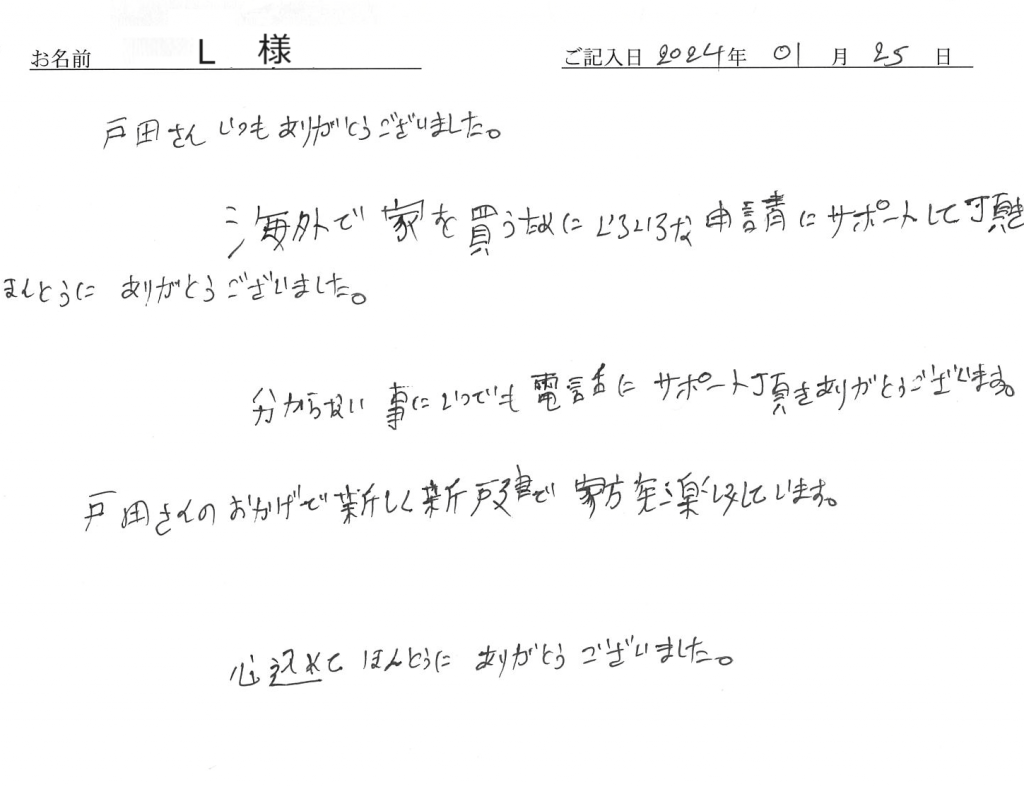 お名前 L 様 ご記入日 2024年 01 月 25 日
戸田さん いつも ありがとうございました。
海外で 家を買うために いろいろな 申請に サポートして頂き
ほんとうに ありがとうございました。
分からない 事に いつでも 電話に サポート頂きありがとうございます。
戸田さんのおかげで新しく新戸建で 楽しみしています。
心込めて ほんとうに ありがとう ございました。